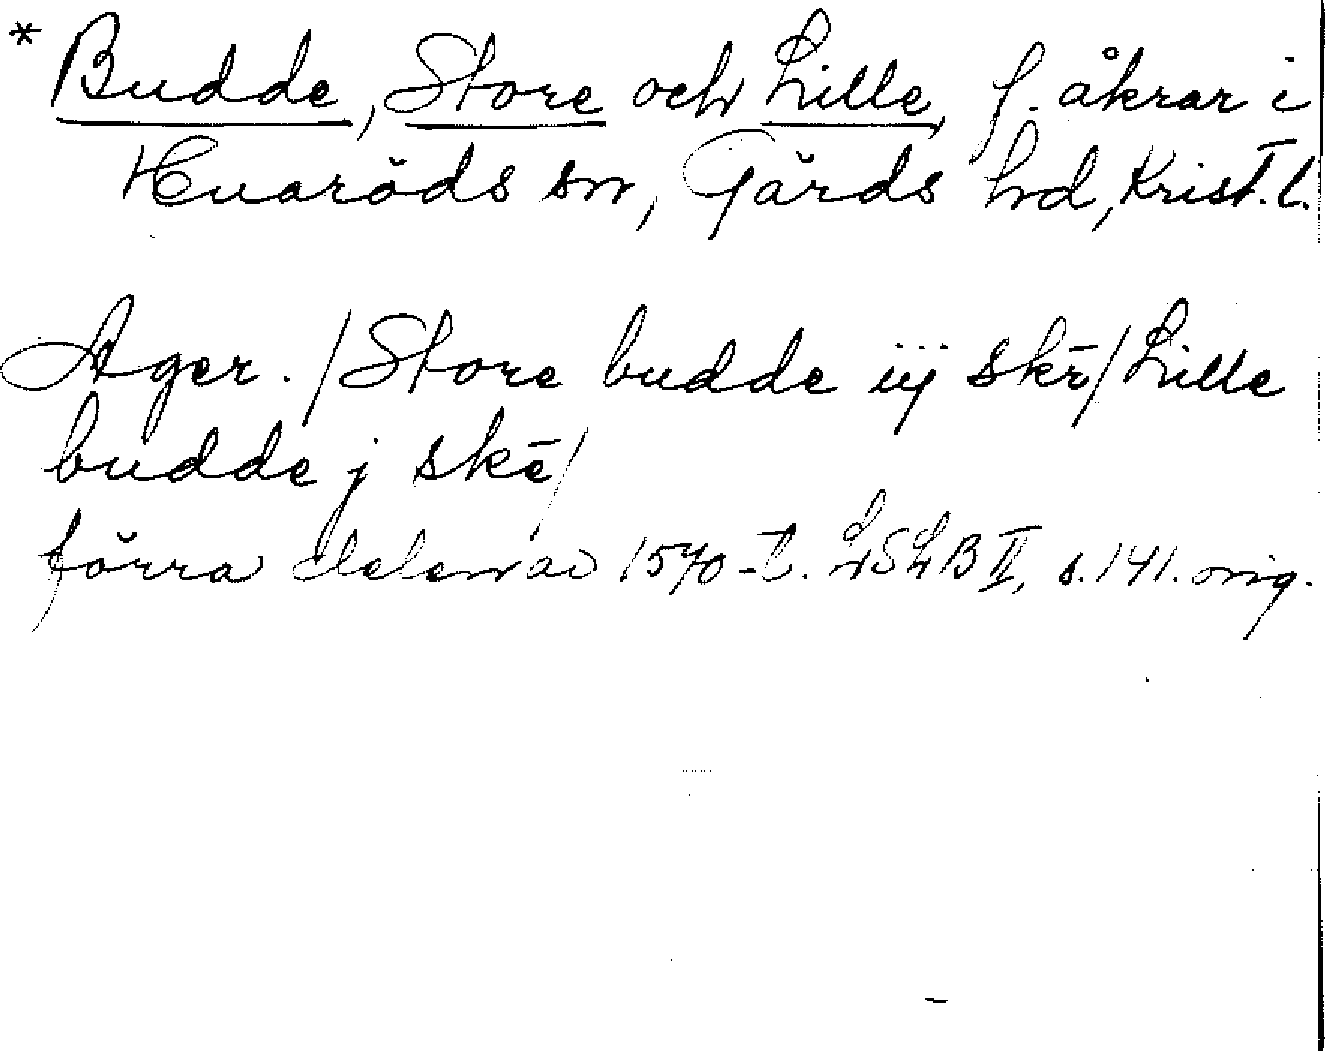 * Budde, Store och Lille, f. åkrar i
Huaröds sn, Gärds hd, Krist. l.
Ager. / Store budde iij skē / Lille
budde j skē /
förra delen av 1570-t. LSLB II, s. 141. orig.